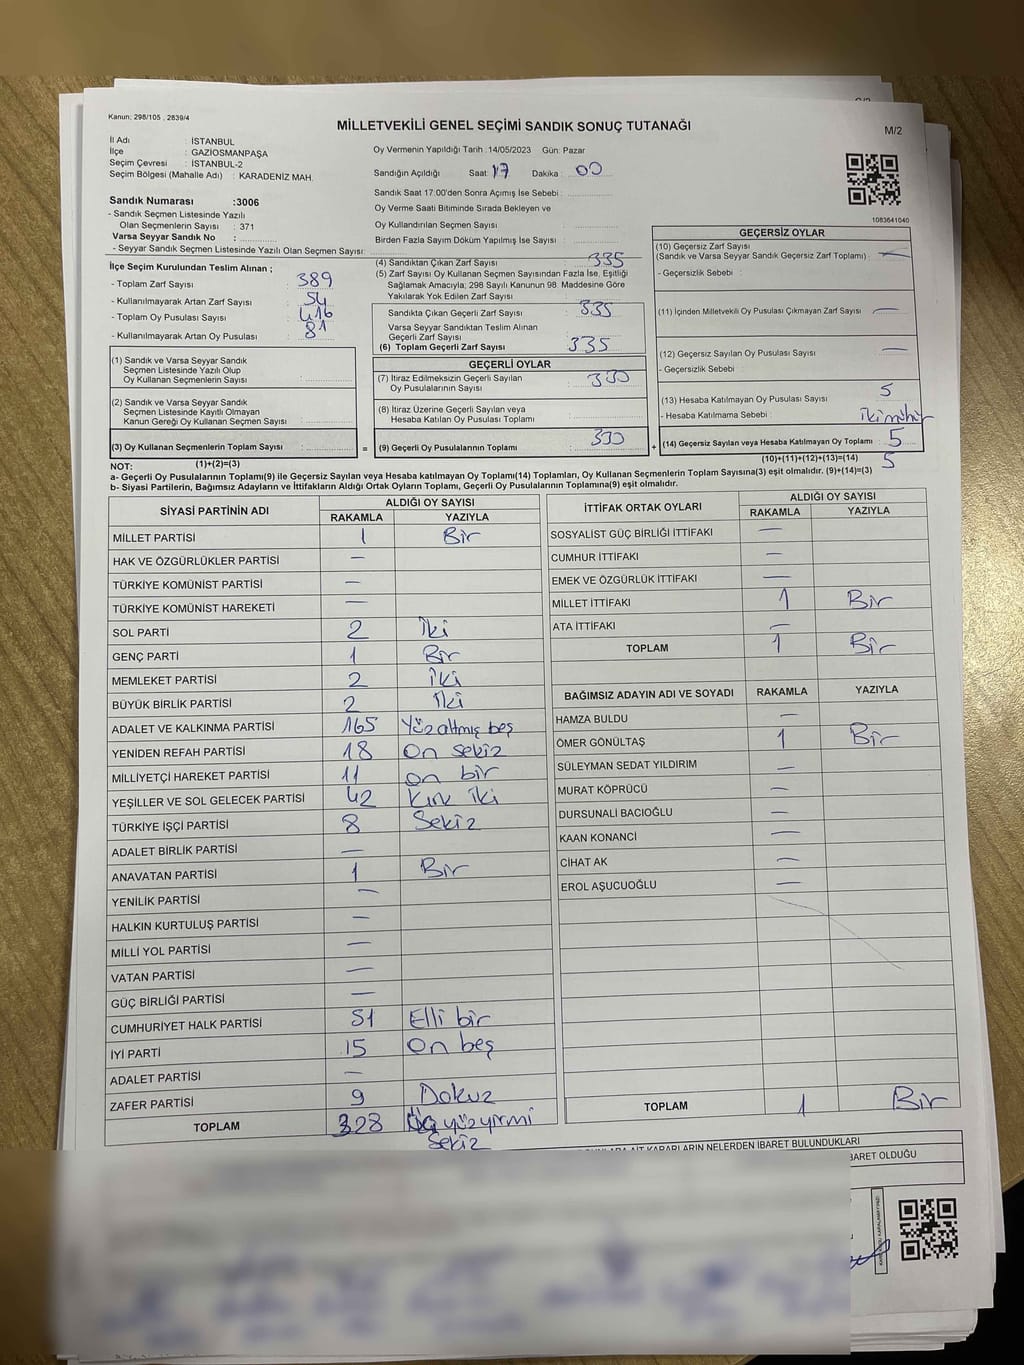 Kanun: 298/105 , 2839/4
MİLLETVEKİLİ GENEL SEÇİMİ SANDIK SONUÇ TUTANAĞI
M/2
İl Adı : İSTANBUL
İlçe : GAZİOSMANPAŞA
Seçim Çevresi : İSTANBUL-2
Seçim Bölgesi (Mahalle Adı) : KARADENİZ MAH.
Sandık Numarası :3006
- Sandık Seçmen Listesinde Yazılı
Olan Seçmenlerin Sayısı : 371
Varsa Seyyar Sandık No :
- Seyyar Sandık Seçmen Listesinde Yazılı Olan Seçmen Sayısı:
Oy Vermenin Yapıldığı Tarih :14/05/2023 Gün: Pazar
Sandığın Açıldığı Saat: 17 Dakika : 00
Sandık Saat 17:00'den Sonra Açımış İse Sebebi :
Oy Verme Saati Bitiminde Sırada Bekleyen ve
Oy Kullandırılan Seçmen Sayısı :
Birden Fazla Sayım Döküm Yapılmış İse Sayısı :
1083641040
İlçe Seçim Kurulundan Teslim Alınan ;
- Toplam Zarf Sayısı : 389
- Kullanılmayarak Artan Zarf Sayısı : 54
- Toplam Oy Pusulası Sayısı : 416
- Kullanılmayarak Artan Oy Pusulası : 81
(1) Sandık ve Varsa Seyyar Sandık
Seçmen Listesinde Yazılı Olup
Oy Kullanan Seçmenlerin Sayısı :
(2) Sandık ve Varsa Seyyar Sandık
Seçmen Listesinde Kayıtlı Olmayan
Kanun Gereği Oy Kullanan Seçmen Sayısı :
(3) Oy Kullanan Seçmenlerin Toplam Sayısı :
(1)+(2)=(3)
(4) Sandıktan Çıkan Zarf Sayısı : 335
(5) Zarf Sayısı Oy Kullanan Seçmen Sayısından Fazla İse, Eşitliği
Sağlamak Amacıyla; 298 Sayılı Kanunun 98. Maddesine Göre
Yakılarak Yok Edilen Zarf Sayısı :
Sandıkta Çıkan Geçerli Zarf Sayısı : 335
Varsa Seyyar Sandıktan Teslim Alınan
Geçerli Zarf Sayısı :
(6) Toplam Geçerli Zarf Sayısı 335
GEÇERLİ OYLAR
(7) İtiraz Edilmeksizin Geçerli Sayılan 330
Oy Pusulalarının Sayısı
(8) İtiraz Üzerine Geçerli Sayılan veya
Hesaba Katılan Oy Pusulası Toplamı :
= (9) Geçerli Oy Pusulalarının Toplamı : 330
GEÇERSİZ OYLAR
(10) Geçersiz Zarf Sayısı
(Sandık ve Varsa Seyyar Sandık Geçersiz Zarf Toplamı) : —
- Geçersizlik Sebebi :
(11) İçinden Milletvekili Oy Pusulası Çıkmayan Zarf Sayısı : —
(12) Geçersiz Sayılan Oy Pusulası Sayısı : —
- Geçersizlik Sebebi :
(13) Hesaba Katılmayan Oy Pusulası Sayısı : 5
- Hesaba Katılmama Sebebi : iki mühür
+ (14) Geçersiz Sayılan veya Hesaba Katılmayan Oy Toplamı : 5
(10)+(11)+(12)+(13)=(14) 5
NOT:
a- Geçerli Oy Pusulalarının Toplamı(9) ile Geçersiz Sayılan veya Hesaba katılmayan Oy Toplamı(14) Toplamları, Oy Kullanan Seçmenlerin Toplam Sayısına(3) eşit olmalıdır. (9)+(14)=(3)
b- Siyasi Partilerin, Bağımsız Adayların ve İttifakların Aldığı Ortak Oyların Toplamı, Geçerli Oy Pusulalarının Toplamına(9) eşit olmalıdır.
SİYASİ PARTİNİN ADI ALDIĞI OY SAYISI
RAKAMLA YAZIYLA
MİLLET PARTİSİ 1 Bir
HAK VE ÖZGÜRLÜKLER PARTİSİ —
TÜRKİYE KOMÜNİST PARTİSİ —
TÜRKİYE KOMÜNİST HAREKETİ —
SOL PARTİ 2 İki
GENÇ PARTİ 1 Bir
MEMLEKET PARTİSİ 2 İki
BÜYÜK BİRLİK PARTİSİ 2 İki
ADALET VE KALKINMA PARTİSİ 165 Yüz altmış beş
YENİDEN REFAH PARTİSİ 18 On sekiz
MİLLİYETÇİ HAREKET PARTİSİ 11 on bir
YEŞİLLER VE SOL GELECEK PARTİSİ 42 Kırk iki
TÜRKİYE İŞÇİ PARTİSİ 8 Sekiz
ADALET BİRLİK PARTİSİ —
ANAVATAN PARTİSİ 1 Bir
YENİLİK PARTİSİ —
HALKIN KURTULUŞ PARTİSİ —
MİLLİ YOL PARTİSİ —
VATAN PARTİSİ —
GÜÇ BİRLİĞİ PARTİSİ —
CUMHURİYET HALK PARTİSİ 51 Elli bir
İYİ PARTİ 15 On beş
ADALET PARTİSİ —
ZAFER PARTİSİ 9 Dokuz
TOPLAM 328 Üç yüz yirmi
Sekiz
İTTİFAK ORTAK OYLARI ALDIĞI OY SAYISI
RAKAMLA YAZIYLA
SOSYALİST GÜÇ BİRLİĞİ İTTİFAKI —
CUMHUR İTTİFAKI —
EMEK VE ÖZGÜRLÜK İTTİFAKI —
MİLLET İTTİFAKI 1 Bir
ATA İTTİFAKI —
TOPLAM 1 Bir
BAĞIMSIZ ADAYIN ADI VE SOYADI RAKAMLA YAZIYLA
HAMZA BULDU —
ÖMER GÖNÜLTAŞ 1 Bir
SÜLEYMAN SEDAT YILDIRIM —
MURAT KÖPRÜCÜ —
DURSUNALİ BACIOĞLU —
KAAN KONANCİ —
CİHAT AK —
EROL AŞUCUOĞLU —
TOPLAM 1 Bir
AİT KARARLARIN NELERDEN İBARET BULUNDUKLARI
BARET OLDUĞU